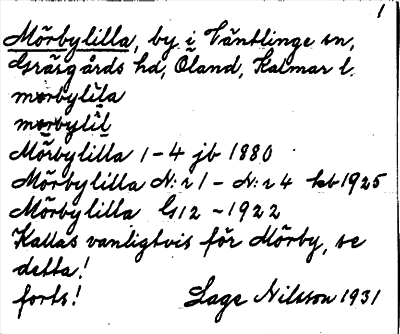 1
Mörbylilla, by i Ventlinge sn,
Gräsgårds hd, Öland, Kalmar l.
mørbylila
mørbylil
Mörbylilla 1-4 jb 1880
Mörbylilla N:r 1 - N:r 4 kb 1925
Mörbylilla G 12 - 1922
Kallas vanligtvis för Mörby, se
detta!
forts! Lage Nilsson 1931